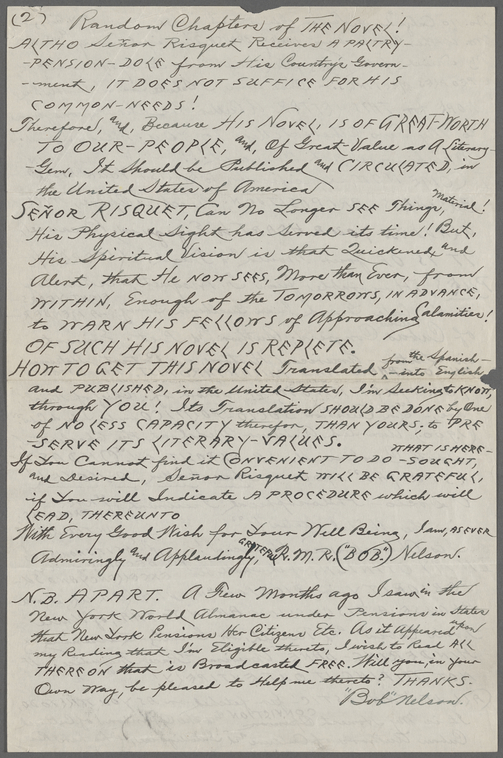 (2) Random Chapters of THE NOVEL!
ALTHO Señor Risquet Receives A PALTRY-
-PENSION-DOLE from His Country's Govern-
-ment, IT DOES NOT SUFFICE FOR HIS
COMMON-NEEDS!
Therefore, and, Because HIS NOVEL, IS OF GREAT-WORTH
TO OUR-PEOPLE, and, Of Great-Value as A Literary-
-Gem, It Should be Published and CIRCULATED, in
the United States of America
SEÑOR RISQUET, Can No Longer SEE Things, material!
His Physical Sight has Served its time! But,
His Spiritual Vision is that Quickened, and
Alert, that HE NOW SEES, More than Ever, from
WITHIN, Enough of the TOMORROWS, IN ADVANCE,
to WARN HIS FELLOWS of Approaching Calamities!
OF SUCH HIS NOVEL IS REPLETE.
HOW TO GET THIS NOVEL Translated from the Spanish-
-into English
and PUBLISHED, in the United States, I'm Seeking to KNOW,
through YOU! Its Translation SHOULD BE DONE by One
of NO LESS CAPACITY therefor, THAN YOURS, to PRE
-SERVE ITS LITERARY-VALUES.
If You Cannot find it CONVENIENT TO DO WHAT IS HERE-
-SOUGHT,
and Desired, Señor Risquet WILL BE GRATEFUL,
if You will Indicate A PROCEDURE which will
LEAD, THEREUNTO
With Every Good Wish for Your Well Being, I am, AS EVER
Admiringly and Applaudingly, GRATEFUL, R. M. R. ("BOB") Nelson.
N.B. APART. A Few Months ago I saw in the
New York World Almanac under Pensions in States
that New York Pensions Her Citizens Etc. As it Appeared upon
my Reading that I'm Eligible thereto, I wish to Read ALL
THEREON that is Broadcasted FREE. Will you, in your
Own Way, be pleased to Help me thereto? THANKS.
"Bob" Nelson.